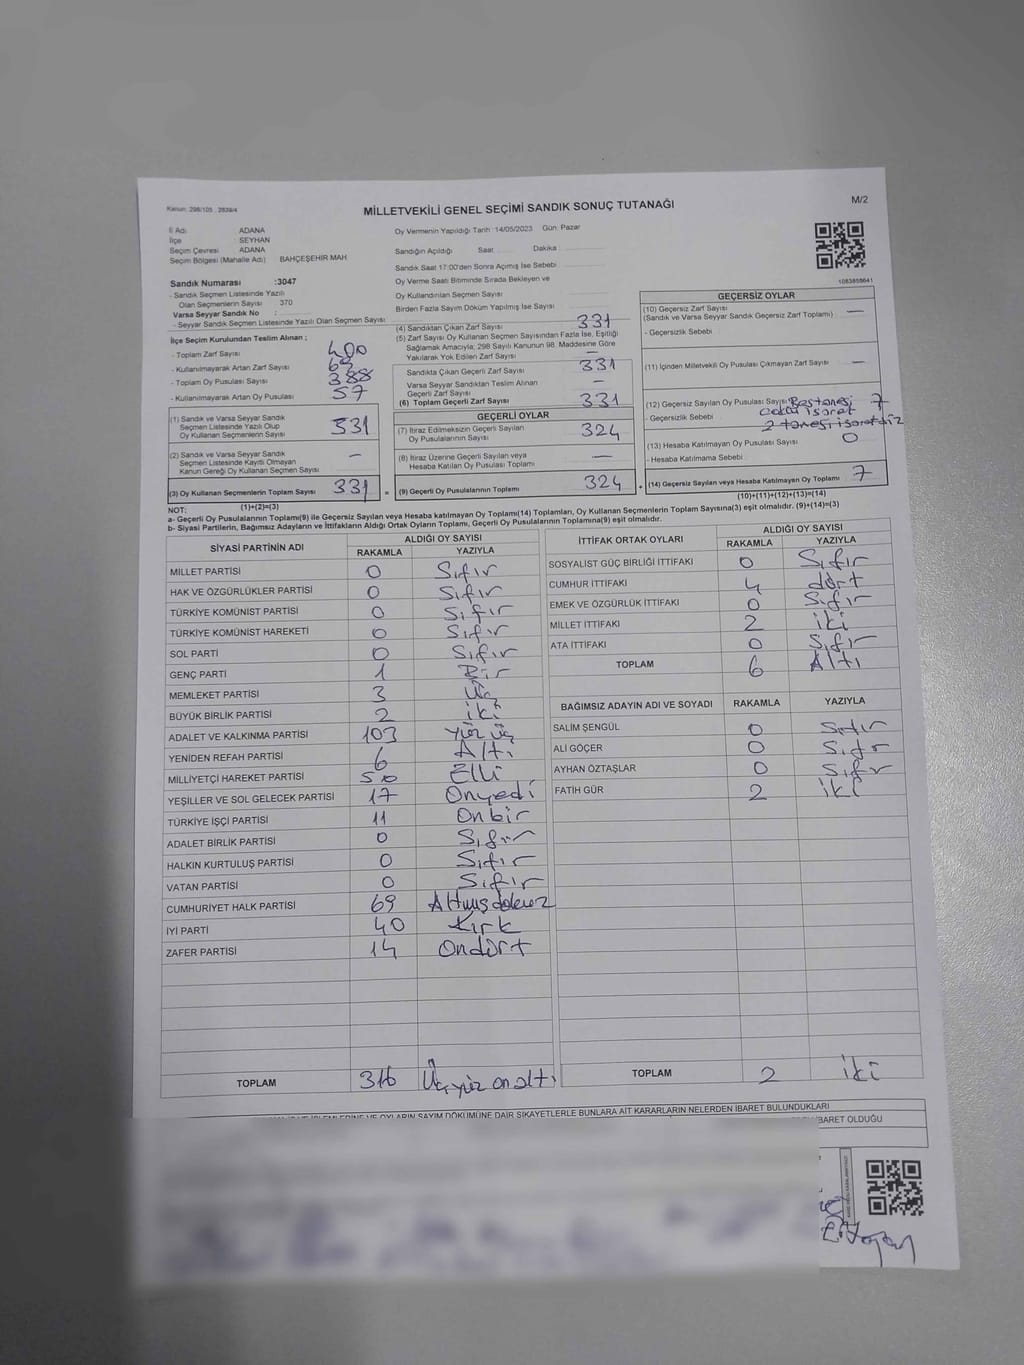 Kanun: 298/105 , 2839/4
MİLLETVEKİLİ GENEL SEÇİMİ SANDIK SONUÇ TUTANAĞI
M/2
İl Adı ADANA
İlçe SEYHAN
Seçim Çevresi ADANA
Seçim Bölgesi (Mahalle Adı) BAHÇEŞEHİR MAH
Sandık Numarası :3047
- Sandık Seçmen Listesinde Yazılı
Olan Seçmenlerin Sayısı 370
Varsa Seyyar Sandık No :
- Seyyar Sandık Seçmen Listesinde Yazılı Olan Seçmen Sayısı
Oy Vermenin Yapıldığı Tarih :14/05/2023 Gün: Pazar
Sandığın Açıldığı Saat Dakika :
Sandık Saat 17:00'den Sonra Açımış İse Sebebi
Oy Verme Saati Bitiminde Sırada Bekleyen ve
Oy Kullandırılan Seçmen Sayısı
Birden Fazla Sayım Döküm Yapılmış İse Sayısı
1083858641
İlçe Seçim Kurulundan Teslim Alınan ;
- Toplam Zarf Sayısı 400
- Kullanılmayarak Artan Zarf Sayısı
- Toplam Oy Pusulası Sayısı 388
- Kullanılmayarak Artan Oy Pusulası 57
(1) Sandık ve Varsa Seyyar Sandık
Seçmen Listesinde Yazılı Olup
Oy Kullanan Seçmenlerin Sayısı 331
(2) Sandık ve Varsa Seyyar Sandık
Seçmen Listesinde Kayıtlı Olmayan
Kanun Gereği Oy Kullanan Seçmen Sayısı –
(3) Oy Kullanan Seçmenlerin Toplam Sayısı 331 =
(1)+(2)=(3)
(4) Sandıktan Çıkan Zarf Sayısı 331
(5) Zarf Sayısı Oy Kullanan Seçmen Sayısından Fazla İse, Eşitliği
Sağlamak Amacıyla; 298 Sayılı Kanunun 98. Maddesine Göre
Yakılarak Yok Edilen Zarf Sayısı –
Sandıkta Çıkan Geçerli Zarf Sayısı 331
Varsa Seyyar Sandıktan Teslim Alınan
Geçerli Zarf Sayısı –
(6) Toplam Geçerli Zarf Sayısı 331
GEÇERLİ OYLAR
(7) İtiraz Edilmeksizin Geçerli Sayılan
Oy Pusulalarının Sayısı 324
(8) İtiraz Üzerine Geçerli Sayılan veya
Hesaba Katılan Oy Pusulası Toplamı —
(9) Geçerli Oy Pusulalarının Toplamı 324 +
GEÇERSİZ OYLAR
(10) Geçersiz Zarf Sayısı
(Sandık ve Varsa Seyyar Sandık Geçersiz Zarf Toplamı) : —
- Geçersizlik Sebebi :
(11) İçinden Milletvekili Oy Pusulası Çıkmayan Zarf Sayısı —
(12) Geçersiz Sayılan Oy Pusulası Sayısı Beş tanesi 7
- Geçersizlik Sebebi : çoklu işaret
2 tanesi işaretsiz
(13) Hesaba Katılmayan Oy Pusulası Sayısı 0
- Hesaba Katılmama Sebebi :
(14) Geçersiz Sayılan veya Hesaba Katılmayan Oy Toplamı 7
(10)+(11)+(12)+(13)=(14)
NOT:
a- Geçerli Oy Pusulaları Toplamı(9) ile Geçersiz Sayılan veya Hesaba katılmayan Oy Toplamı(14) Toplamları, Oy Kullanan Seçmenlerin Toplam Sayısına(3) eşit olmalıdır. (9)+(14)=(3)
b- Siyasi Partilerin, Bağımsız Adayların ve İttifakların Aldığı Ortak Oyların Toplamı, Geçerli Oy Pusulalarının Toplamına(9) eşit olmalıdır.
SİYASİ PARTİNİN ADI ALDIĞI OY SAYISI
RAKAMLA YAZIYLA
MİLLET PARTİSİ 0 Sıfır
HAK VE ÖZGÜRLÜKLER PARTİSİ 0 Sıfır
TÜRKİYE KOMÜNİST PARTİSİ 0 Sıfır
TÜRKİYE KOMÜNİST HAREKETİ 0 Sıfır
SOL PARTİ 0 Sıfır
GENÇ PARTİ 1 Bir
MEMLEKET PARTİSİ 3 Üç
BÜYÜK BİRLİK PARTİSİ 2 iki
ADALET VE KALKINMA PARTİSİ 103 Yüz üç
YENİDEN REFAH PARTİSİ 6 Altı
MİLLİYETÇİ HAREKET PARTİSİ 50 Elli
YEŞİLLER VE SOL GELECEK PARTİSİ 17 Onyedi
TÜRKİYE İŞÇİ PARTİSİ 11 Onbir
ADALET BİRLİK PARTİSİ 0 Sıfır
HALKIN KURTULUŞ PARTİSİ 0 Sıfır
VATAN PARTİSİ 0 Sıfır
CUMHURİYET HALK PARTİSİ 69 Altmışdokuz
İYİ PARTİ 40 Kırk
ZAFER PARTİSİ 14 Ondört
TOPLAM 316 Üçyüz on altı
İTTİFAK ORTAK OYLARI ALDIĞI OY SAYISI
RAKAMLA YAZIYLA
SOSYALİST GÜÇ BİRLİĞİ İTTİFAKI 0 Sıfır
CUMHUR İTTİFAKI 4 dört
EMEK VE ÖZGÜRLÜK İTTİFAKI 0 Sıfır
MİLLET İTTİFAKI 2 iki
ATA İTTİFAKI 0 Sıfır
TOPLAM 6 Altı
BAĞIMSIZ ADAYIN ADI VE SOYADI RAKAMLA YAZIYLA
SALİM ŞENGÜL 0 Sıfır
ALİ GÖÇER 0 Sıfır
AYHAN ÖZTAŞLAR 0 Sıfır
FATİH GÜR 2 iki
TOPLAM 2 iki
İŞLEMLERİNE VE OYLARIN SAYIM DÖKÜMÜNE DAİR ŞİKAYETLERLE BUNLARA AİT KARARLARIN NELERDEN İBARET BULUNDUKLARI
İBARET OLDUĞU